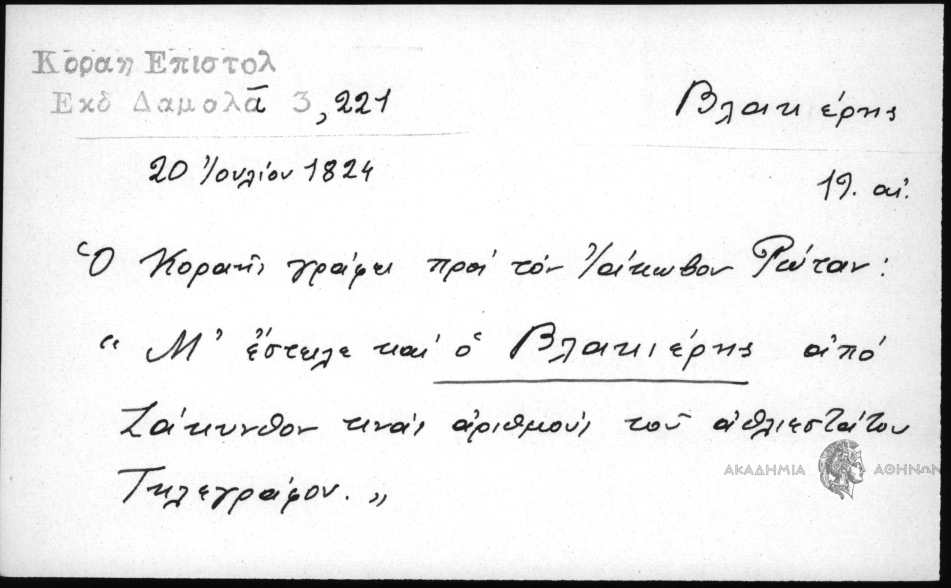 Κοραη Επιστολ
Εκδ Δαμαλᾶ 3, 221
Βλακιέρης
20 Ἰουλίου 1824
19. αἰ.
Ὁ Κοραῆς γράφει πρὸς τὸν Ἰάκωβον Ρώταν:
"Μ' ἔστειλε καὶ ὁ Βλακιέρης ἀπό
Ζάκυνθον τινὰς ἀριθμοὺς τοῦ ἀθλιεστάτου
Τηλεγράφου."
ΑΚΑΔΗΜΙΑ ΑΘΗΝΩΝ